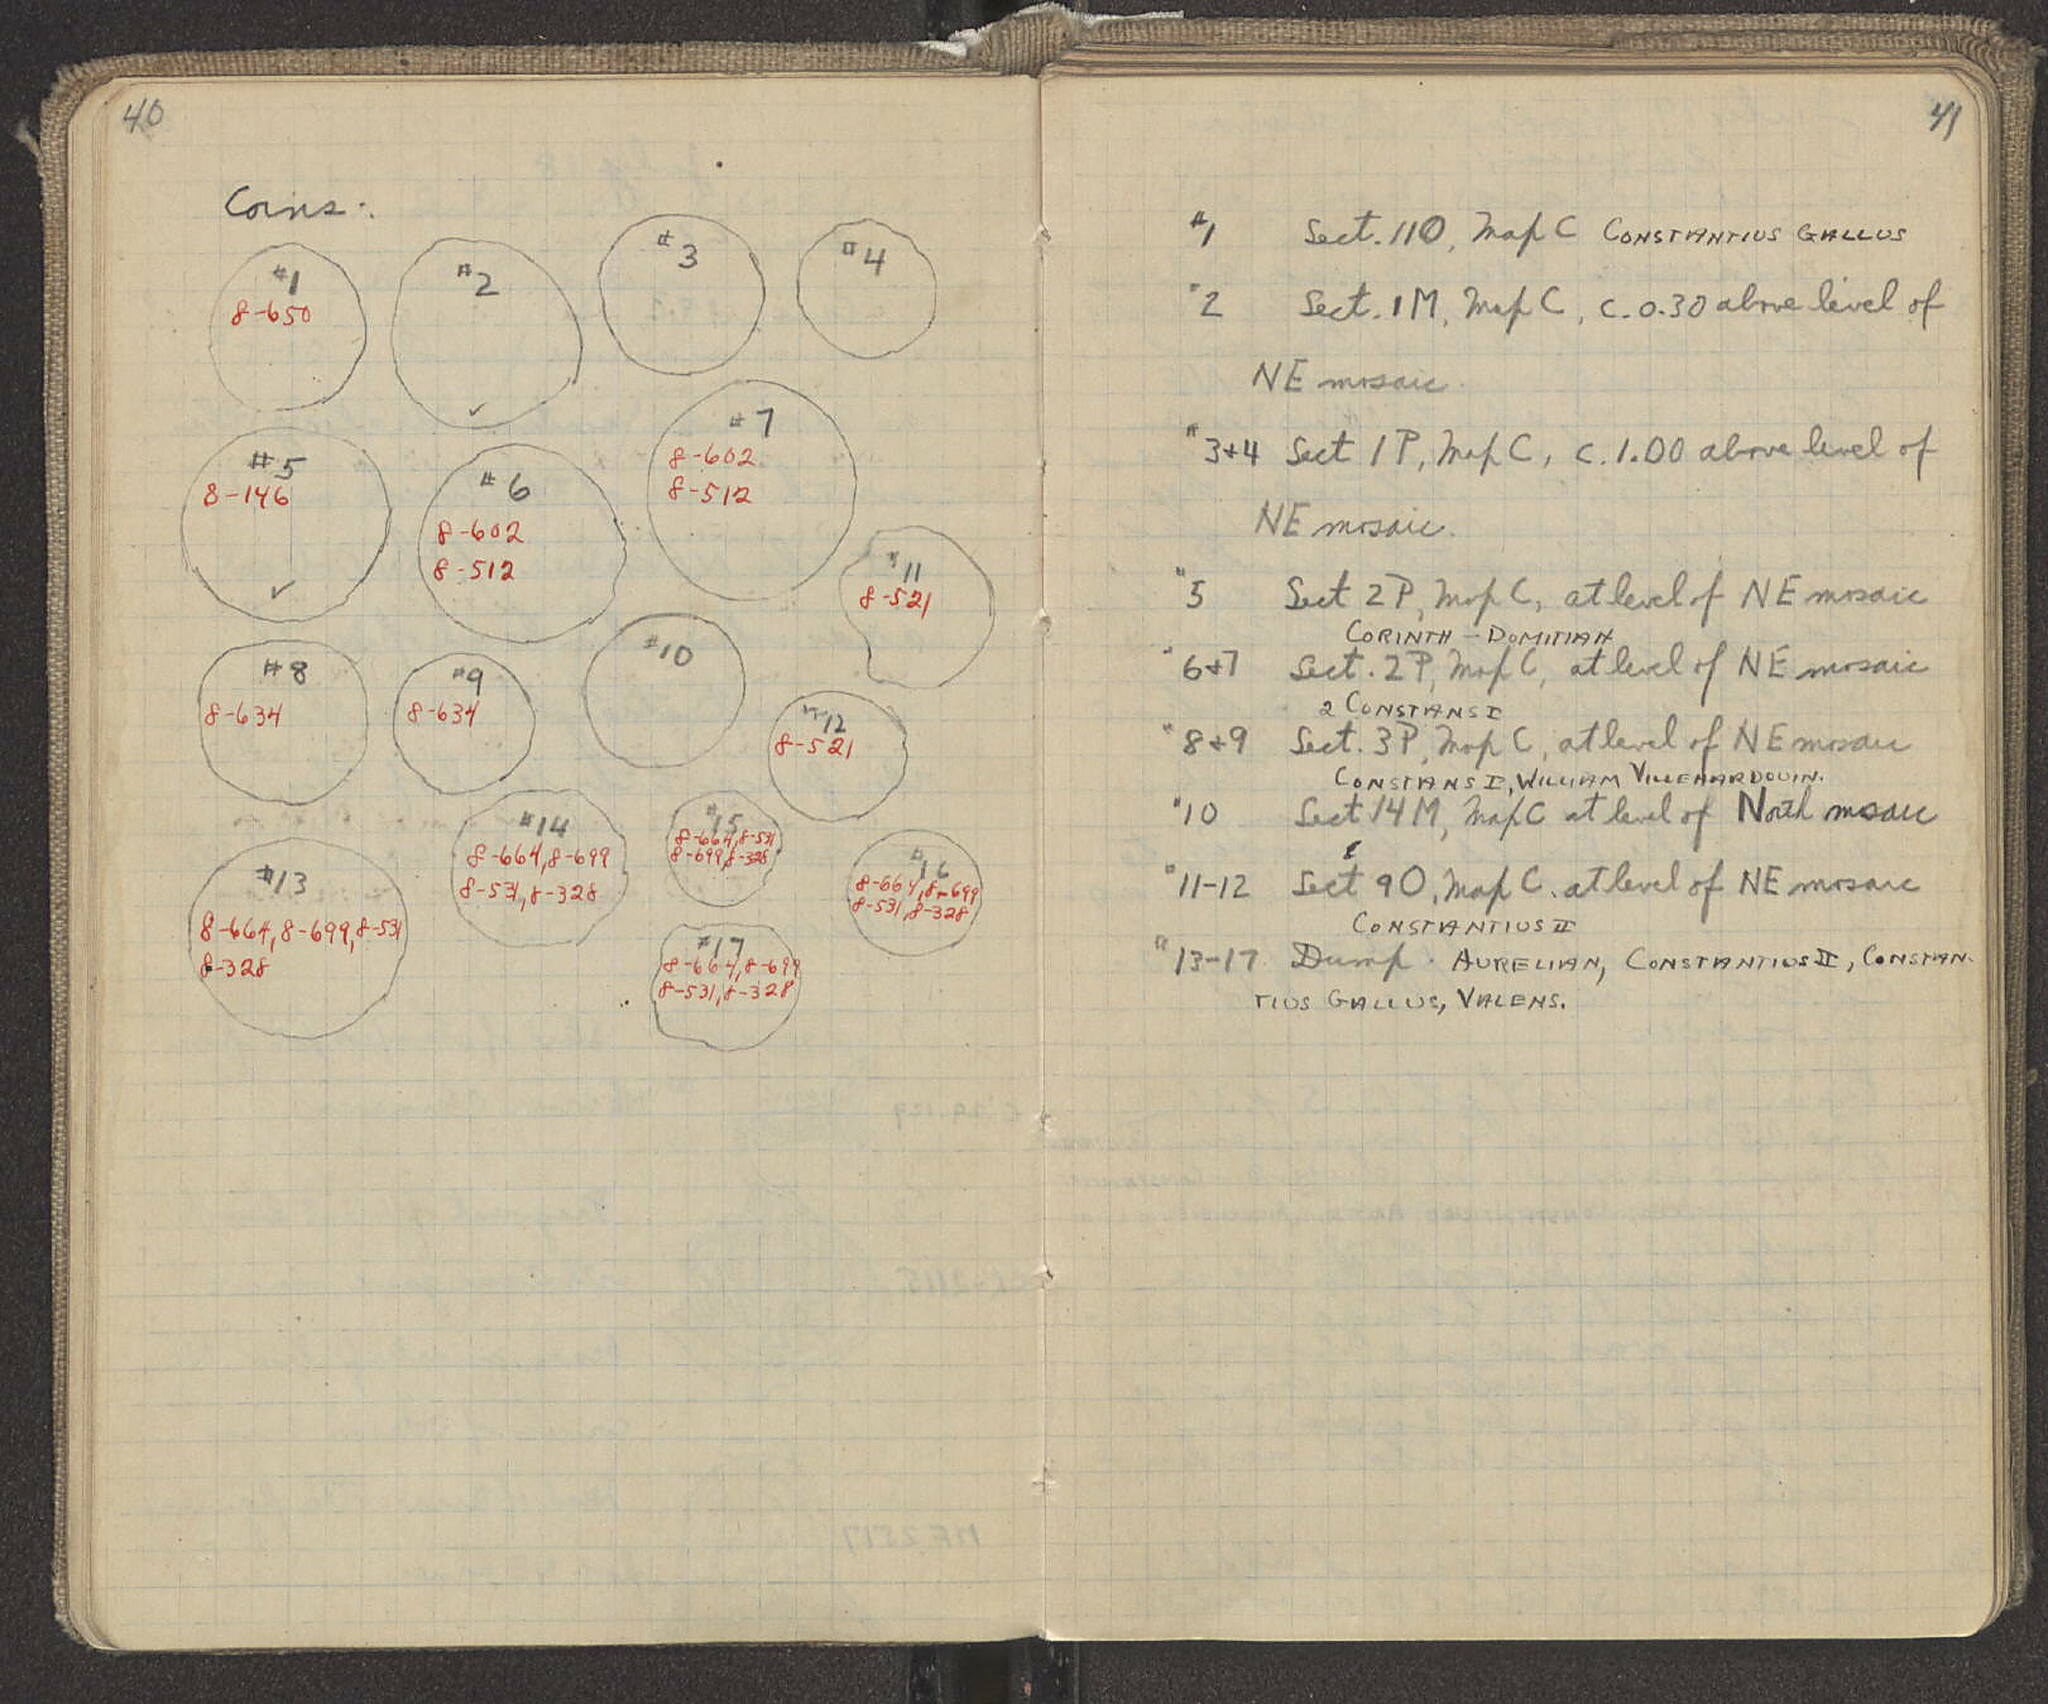 40
Coins:
#1
8-650
#2
#3
#4
#5
8-146
#6
8-602
8-512
#7
8-602
8-512
#8
8-634
#9
8-634
#10
#11
8-521
#12
8-521
#13
8-664, 8-699, 8-531
8-328
#14
8-664, 8-699
8-531, 8-328
#15
8-664, 8-531
8-699, 8-328
#16
8-664, 8-699
8-531, 8-328
#17
8-664, 8-699
8-531, 8-328
41
#1 Sect. 11O, Map C CONSTANTIUS GALLUS
"2 Sect. 1M, Map C, c. 0.30 above level of
NE mosaic.
"3+4 Sect 1P, Map C, c. 1.00 above level of
NE mosaic.
"5 Sect 2P, Map C, at level of NE mosaic
CORINTH - DOMITIAN
"6+7 Sect. 2P, Map C, at level of NE mosaic
2 CONSTANS I
"8+9 Sect. 3P, Map C, at level of NE mosaic
CONSTANS I, WILLIAM VILLEHARDOUIN.
"10 Sect 14M, Map C at level of North mosaic
"11-12 Sect 9O, Map C. at level of NE mosaic
CONSTANTIUS II
"13-17 Dump. AURELIAN, CONSTANTIUS II, CONSTAN-
TIUS GALLUS, VALENS.